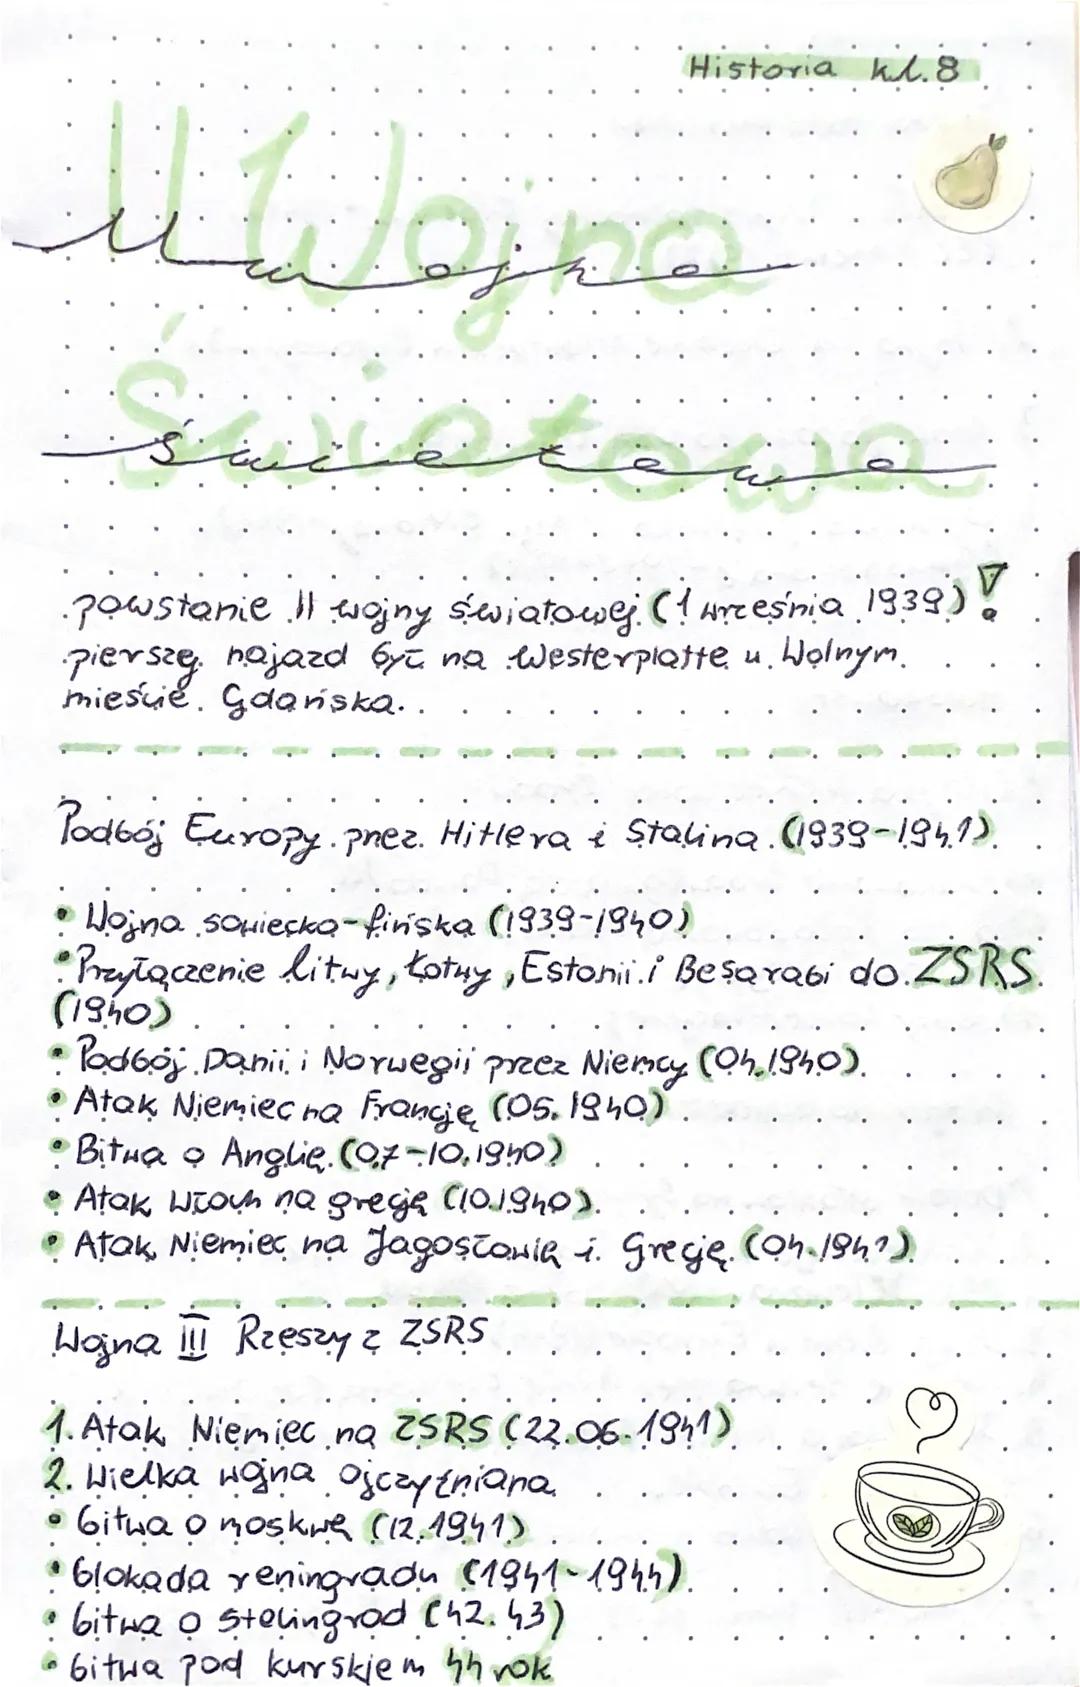 Historia kl. 8
II Wojna
Światowa
powstanie II wojny światowej (1 września 1939)!
pierwszy najazd był na Westerplatte w Wolnym
mieście Gdańska.
Podbój Europy przez Hitlera i Stalina (1939-1941)
• Wojna sowiecko-fińska (1939-1940)
• Przyłączenie litwy, Łotwy, Estonii i Besarabi do ZSRS
(1940)
• Podbój Danii i Norwegii przez Niemcy (04.1940)
• Atak Niemiec na Francję (05.1940)
• Bitwa o Anglię (07-10.1940)
• Atak Włoch na grecję (10.1940)
• Atak Niemiec na Jagosławię i Grecję (04.1941)
Wojna III Rzeszy z ZSRS
1. Atak Niemiec na ZSRS (22.06.1941)
2. Wielka wojna ojczyźniana
• bitwa o moskwę (12.1941)
• blokada reningradu (1941-1944)
• bitwa o stelingrad (42.43)
• bitwa pod kurskiem 44 rok